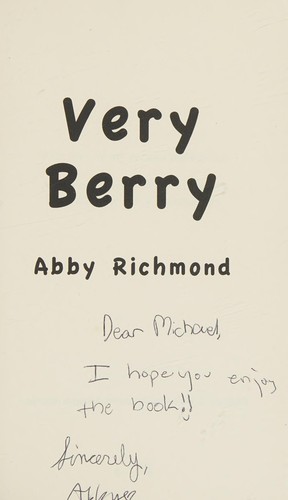 Very
Berry
Abby Richmond
Dear Michael,
I hope you enjoy
the book!!
Sincerely,